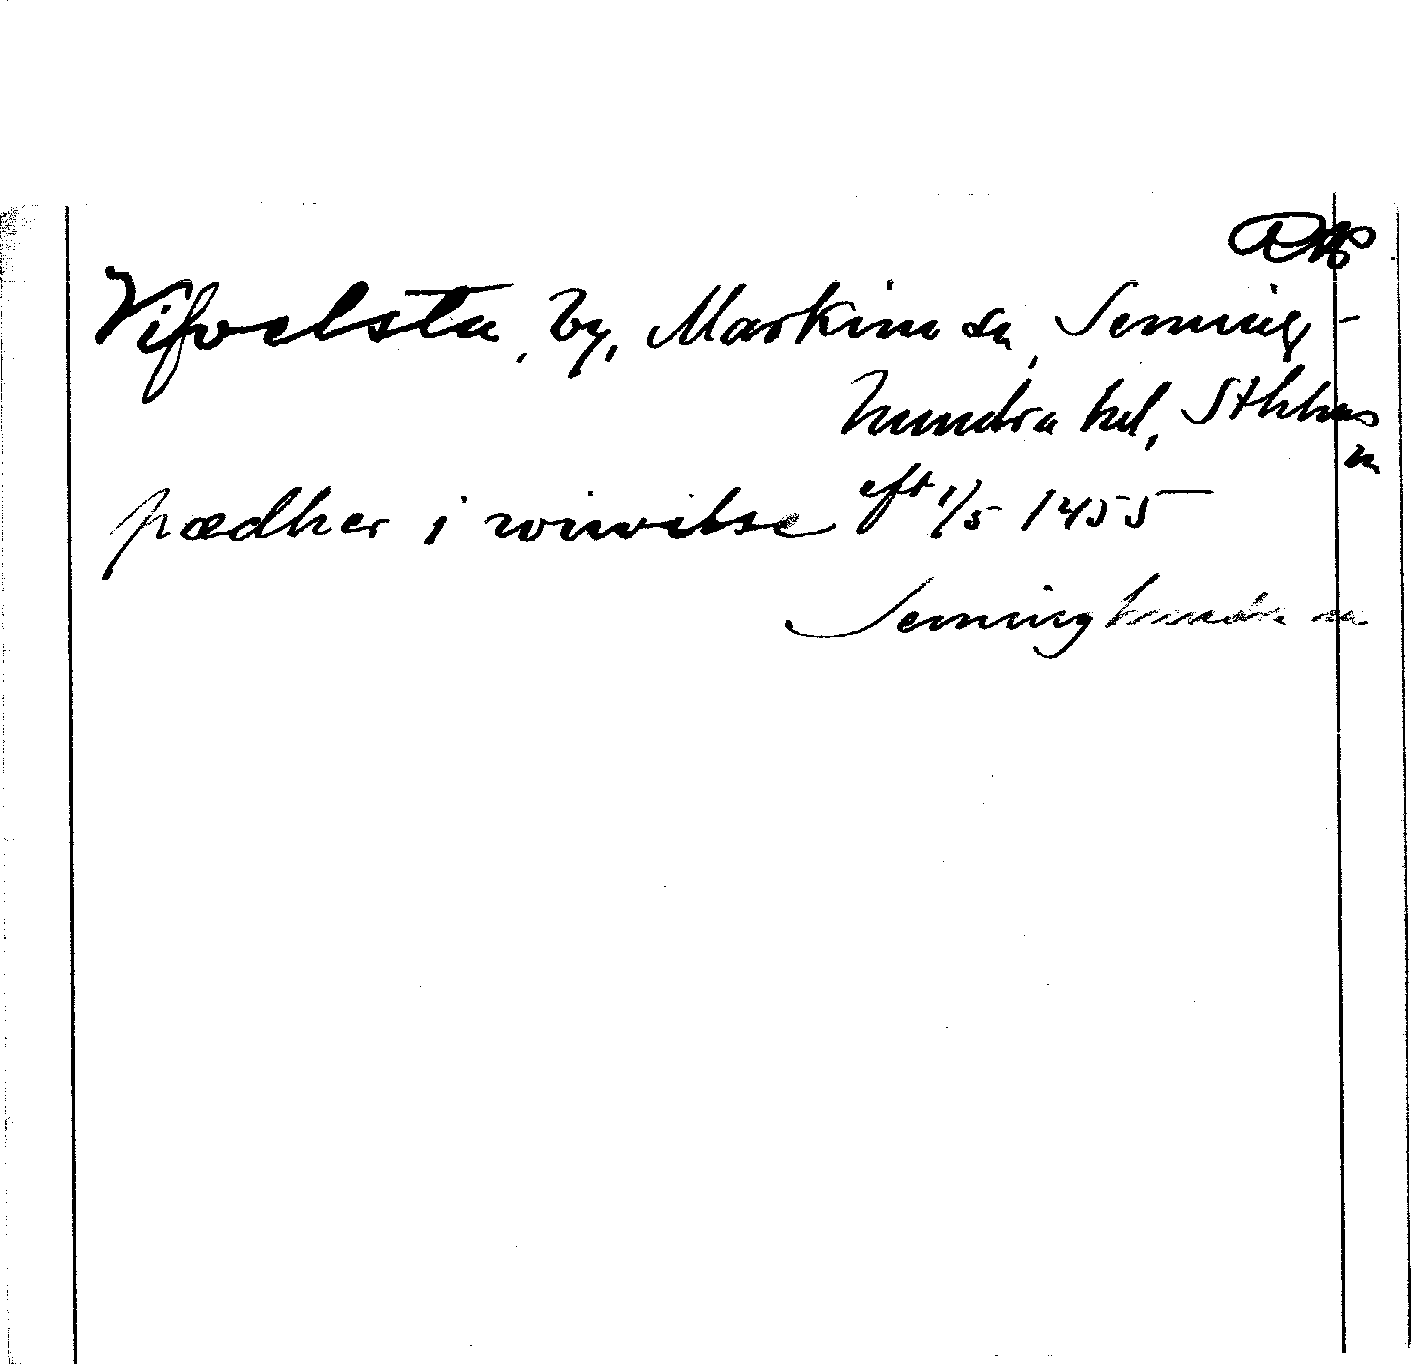 Vifvelsta, by, Markim sn, Seming-
hundra hd, Sthlms
n
pædher i wiwilse eft 1/5 1455
Seminghundr n